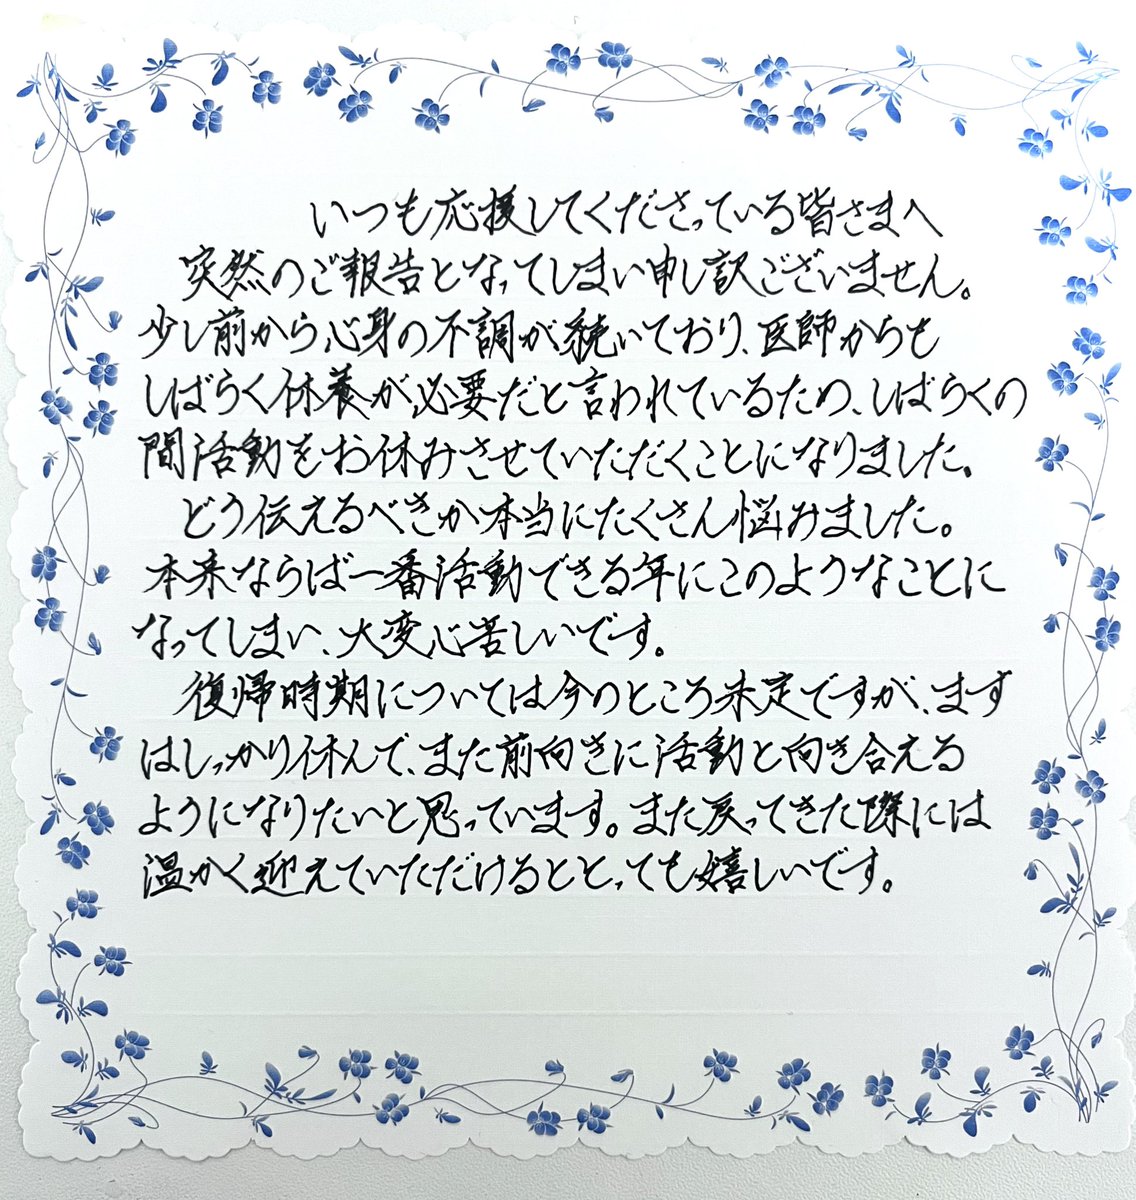 いつも応援してくださっている皆さまへ
突然のご報告となってしまい申し訳ございません。
少し前から心身の不調が続いており、医師からも
しばらく休養が必要だと言われているため、しばらくの
間活動をお休みさせていただくことになりました。
どう伝えるべきか本当にたくさん悩みました。
本来ならば一番活動できる年にこのようなことに
なってしまい、大変心苦しいです。
復帰時期については今のところ未定ですが、まず
はしっかり休んで、また前向きに活動と向き合える
ようになりたいと思っています。また戻ってきた際には
温かく迎えていただけるととっても嬉しいです。